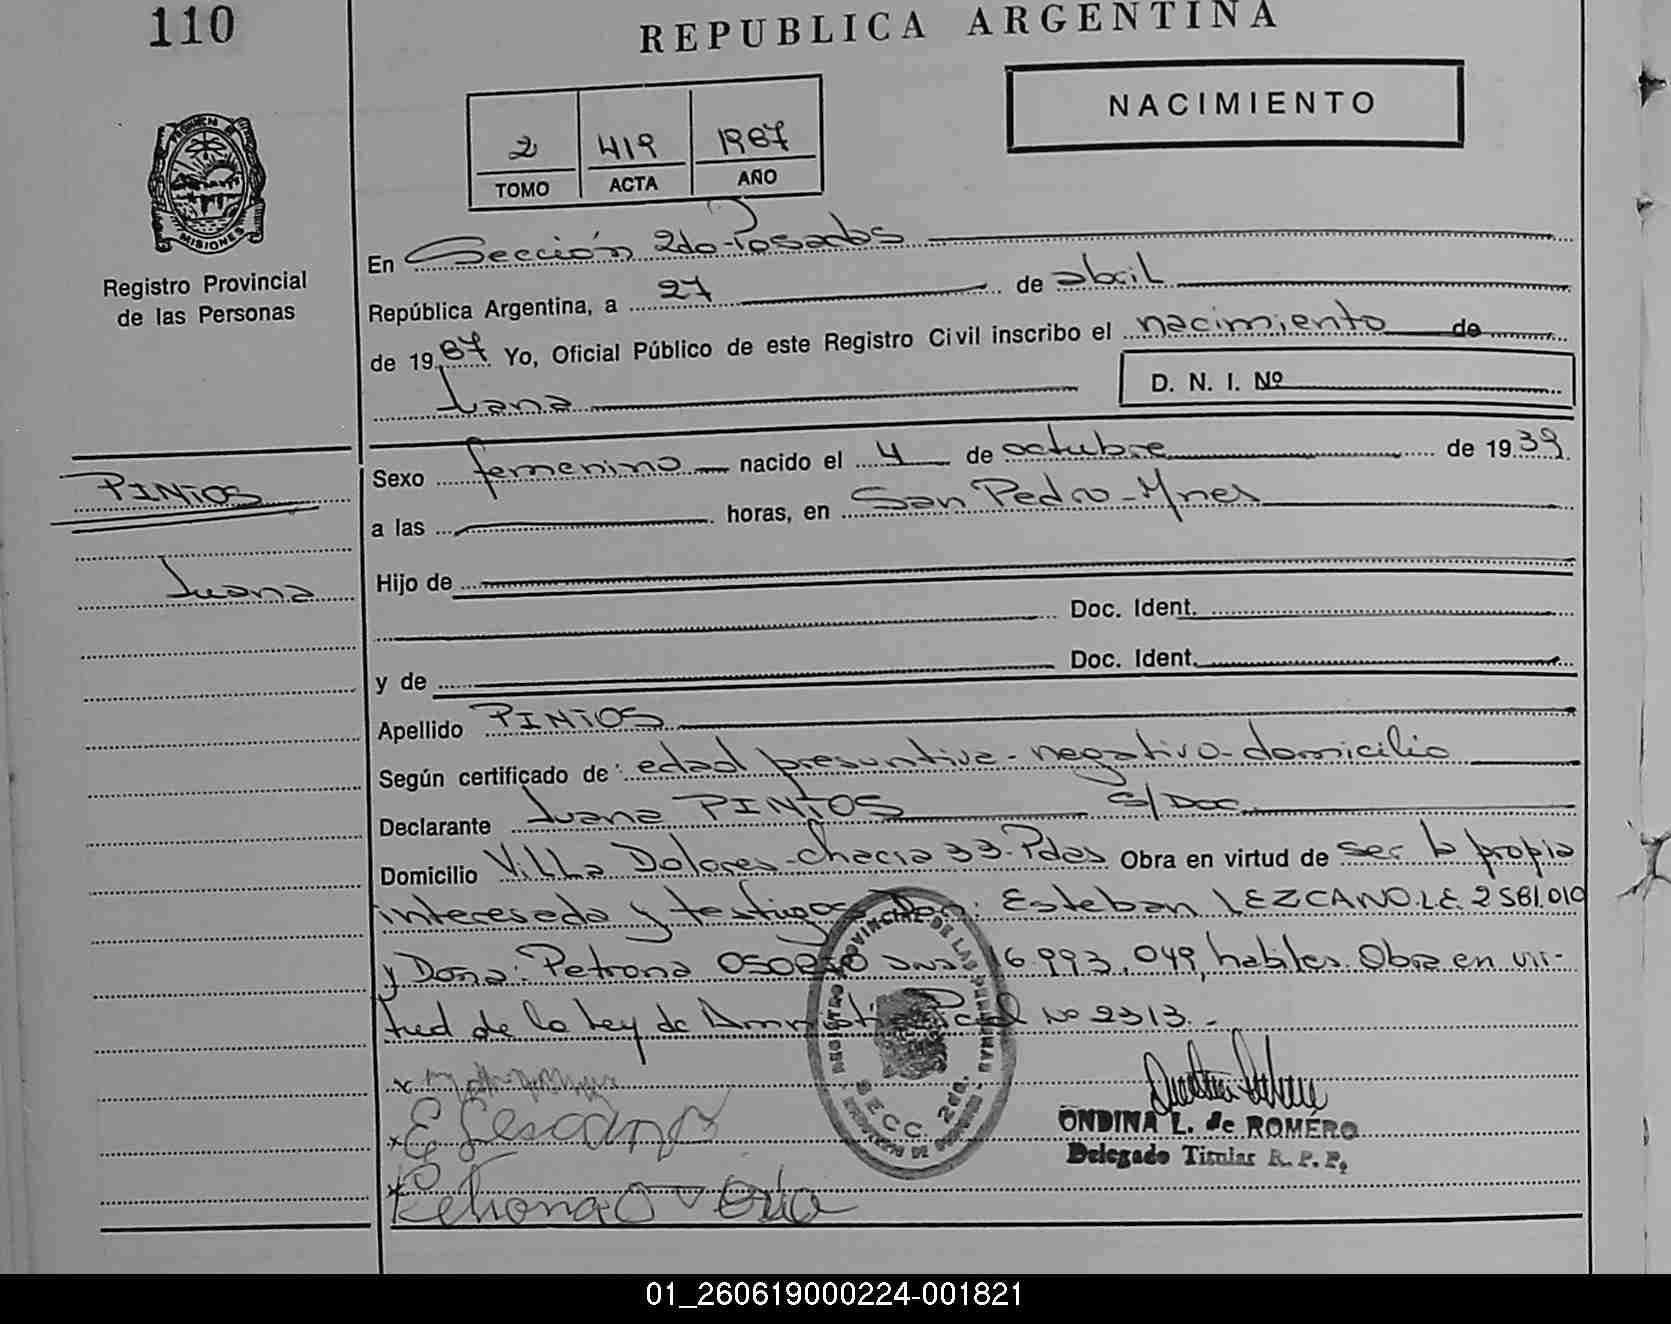 110
REPUBLICA ARGENTINA
NACIMIENTO
2 419 1987
TOMO ACTA AÑO
PROVINCIA DE
MISIONES
Registro Provincial
de las Personas
En Sección 2do-Posadas
República Argentina, a 27 de abril
de 1987 Yo, Oficial Público de este Registro Civil inscribo el nacimiento de
Juana D. N. I. Nº
PINTOS
Juana
Sexo femenino nacido el 4 de octubre de 1939
a las horas, en San Pedro-Mnes
Hijo de
Doc. Ident.
y de Doc. Ident.
Apellido PINTOS
Según certificado de: edad presuntiva-negativo-domicilio
Declarante Juana PINTOS S/Doc.
Domicilio Villa Dolores-chacra 33-Pdas Obra en virtud de ser la propia
interesada y testigos Don: Esteban LEZCANO L.E. 2 581.010
y Doña: Petrona OSORIO 16.993.049, habiles. Obra en vir-
tud de la Ley de Amnistia Nº 2313.-
REGISTRO PROVINCIAL DE LAS PERSONAS
SECC. 2da.
x
x E Lescano
x Petrona
ONDINA L. de ROMERO
Delegado Titular R. P. P.
01_260619000224-001821